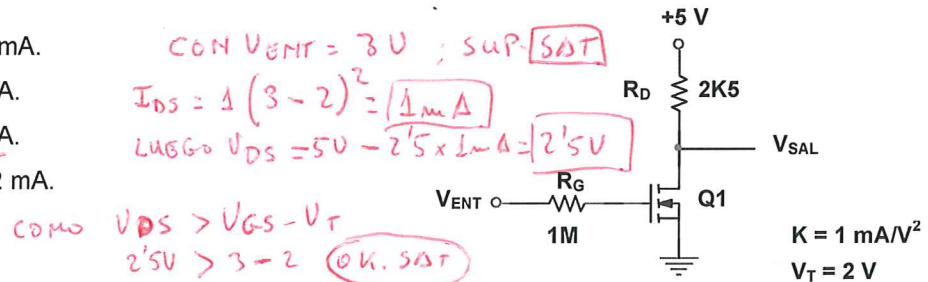 mA.
A.
A.
2 mA.
CON VENT = 3V ; SUP. SAT
IDS = 1 (3 - 2)² = 1mA
LUEGO VDS = 5V - 2'5 x 1mA = 2'5V
COMO VDS > VGS - VT
2'5V > 3 - 2 OK. SAT
+5 V
RD 2K5
VSAL
RG
VENT Q1
1M
K = 1 mA/V²
VT = 2 V